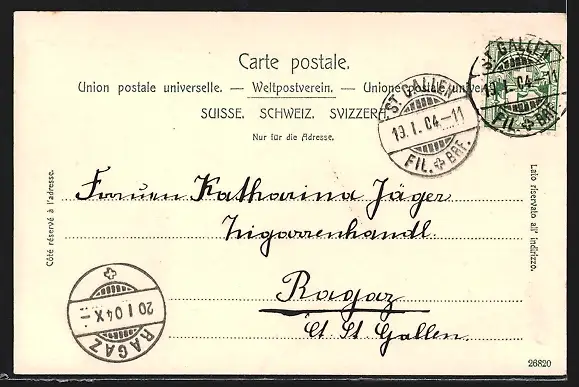 Carte postale.
Union postale universelle. — Weltpostverein. — Unione postale universale
SUISSE. SCHWEIZ. SVIZZERA.
Nur für die Adresse.
ST. GALLEN
19.I.04-11
FIL. BRF.
ST. GALLEN
19.I.04-11
FIL. BRF.
Côté réservé à l'adresse.
Lato riservato all' indirizzo.
Frauen Katharina Jäger
Zigarrenhandl.
Ragaz
Ct. St. Gallen.
20 I 04 X-
RAGAZ
26820